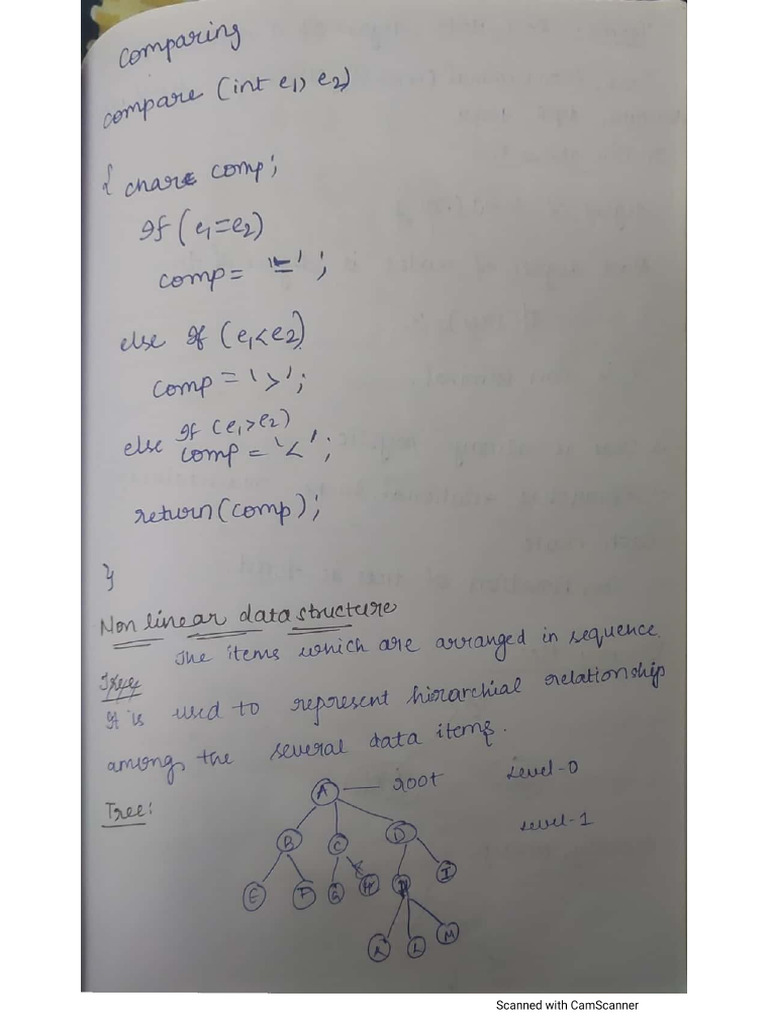 comparing
compare (int e1, e2)
{ chare comp;
If (e1=e2)
comp= '=';
else If (e1<e2)
comp = '>';
else If (e1>e2)
comp = '<';
return (comp);
}
Non linear data structure
The items which are arranged in sequence.
Tree It is used to represent hirarchial relationship
among the several data items.
Tree:
A root Level-0
B C D Level-1
E F G H I
L M
Scanned with CamScanner